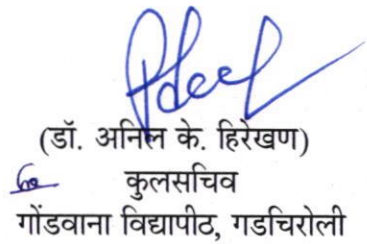 (डॉ. अनिल के. हिरेखण)
कुलसचिव
गोंडवाना विद्यापीठ, गडचिरोली